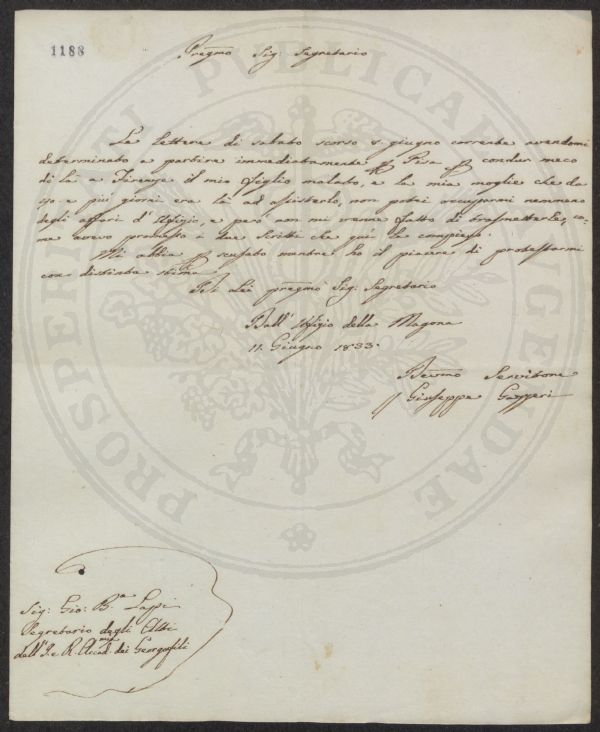 1188
Pregmo Sig. Segretario
La lettera di sabato scorso 8. giugno corrente avendomi
determinato a partire immediatamente p Pisa p condur meco
di là a Firenze il mio figlio malato, e la mia moglie che da
e più giorni era là ad assisterlo, non potei occuparmi nemmeno
degli affari d' Ufizio, e però non mi venne fatto di trasmetterle, co-
me avevo promesso i due scritti che qui le compiego.
Mi abbia p scusato mentre ho il piacere di protestarmi
con distinta stima
Di Lei pregmo Sig. Segretario
Dall' Ufizio della Magona
11. Giugno 1833.
Devmo Servitore
Giuseppe Gazzeri
Sig: Gio: Ba Lapi
Segretario degli Atti
dell' I. e R. Accad. dei Georgofili
PROSPERITATI PUBLICAE AUGENDAE